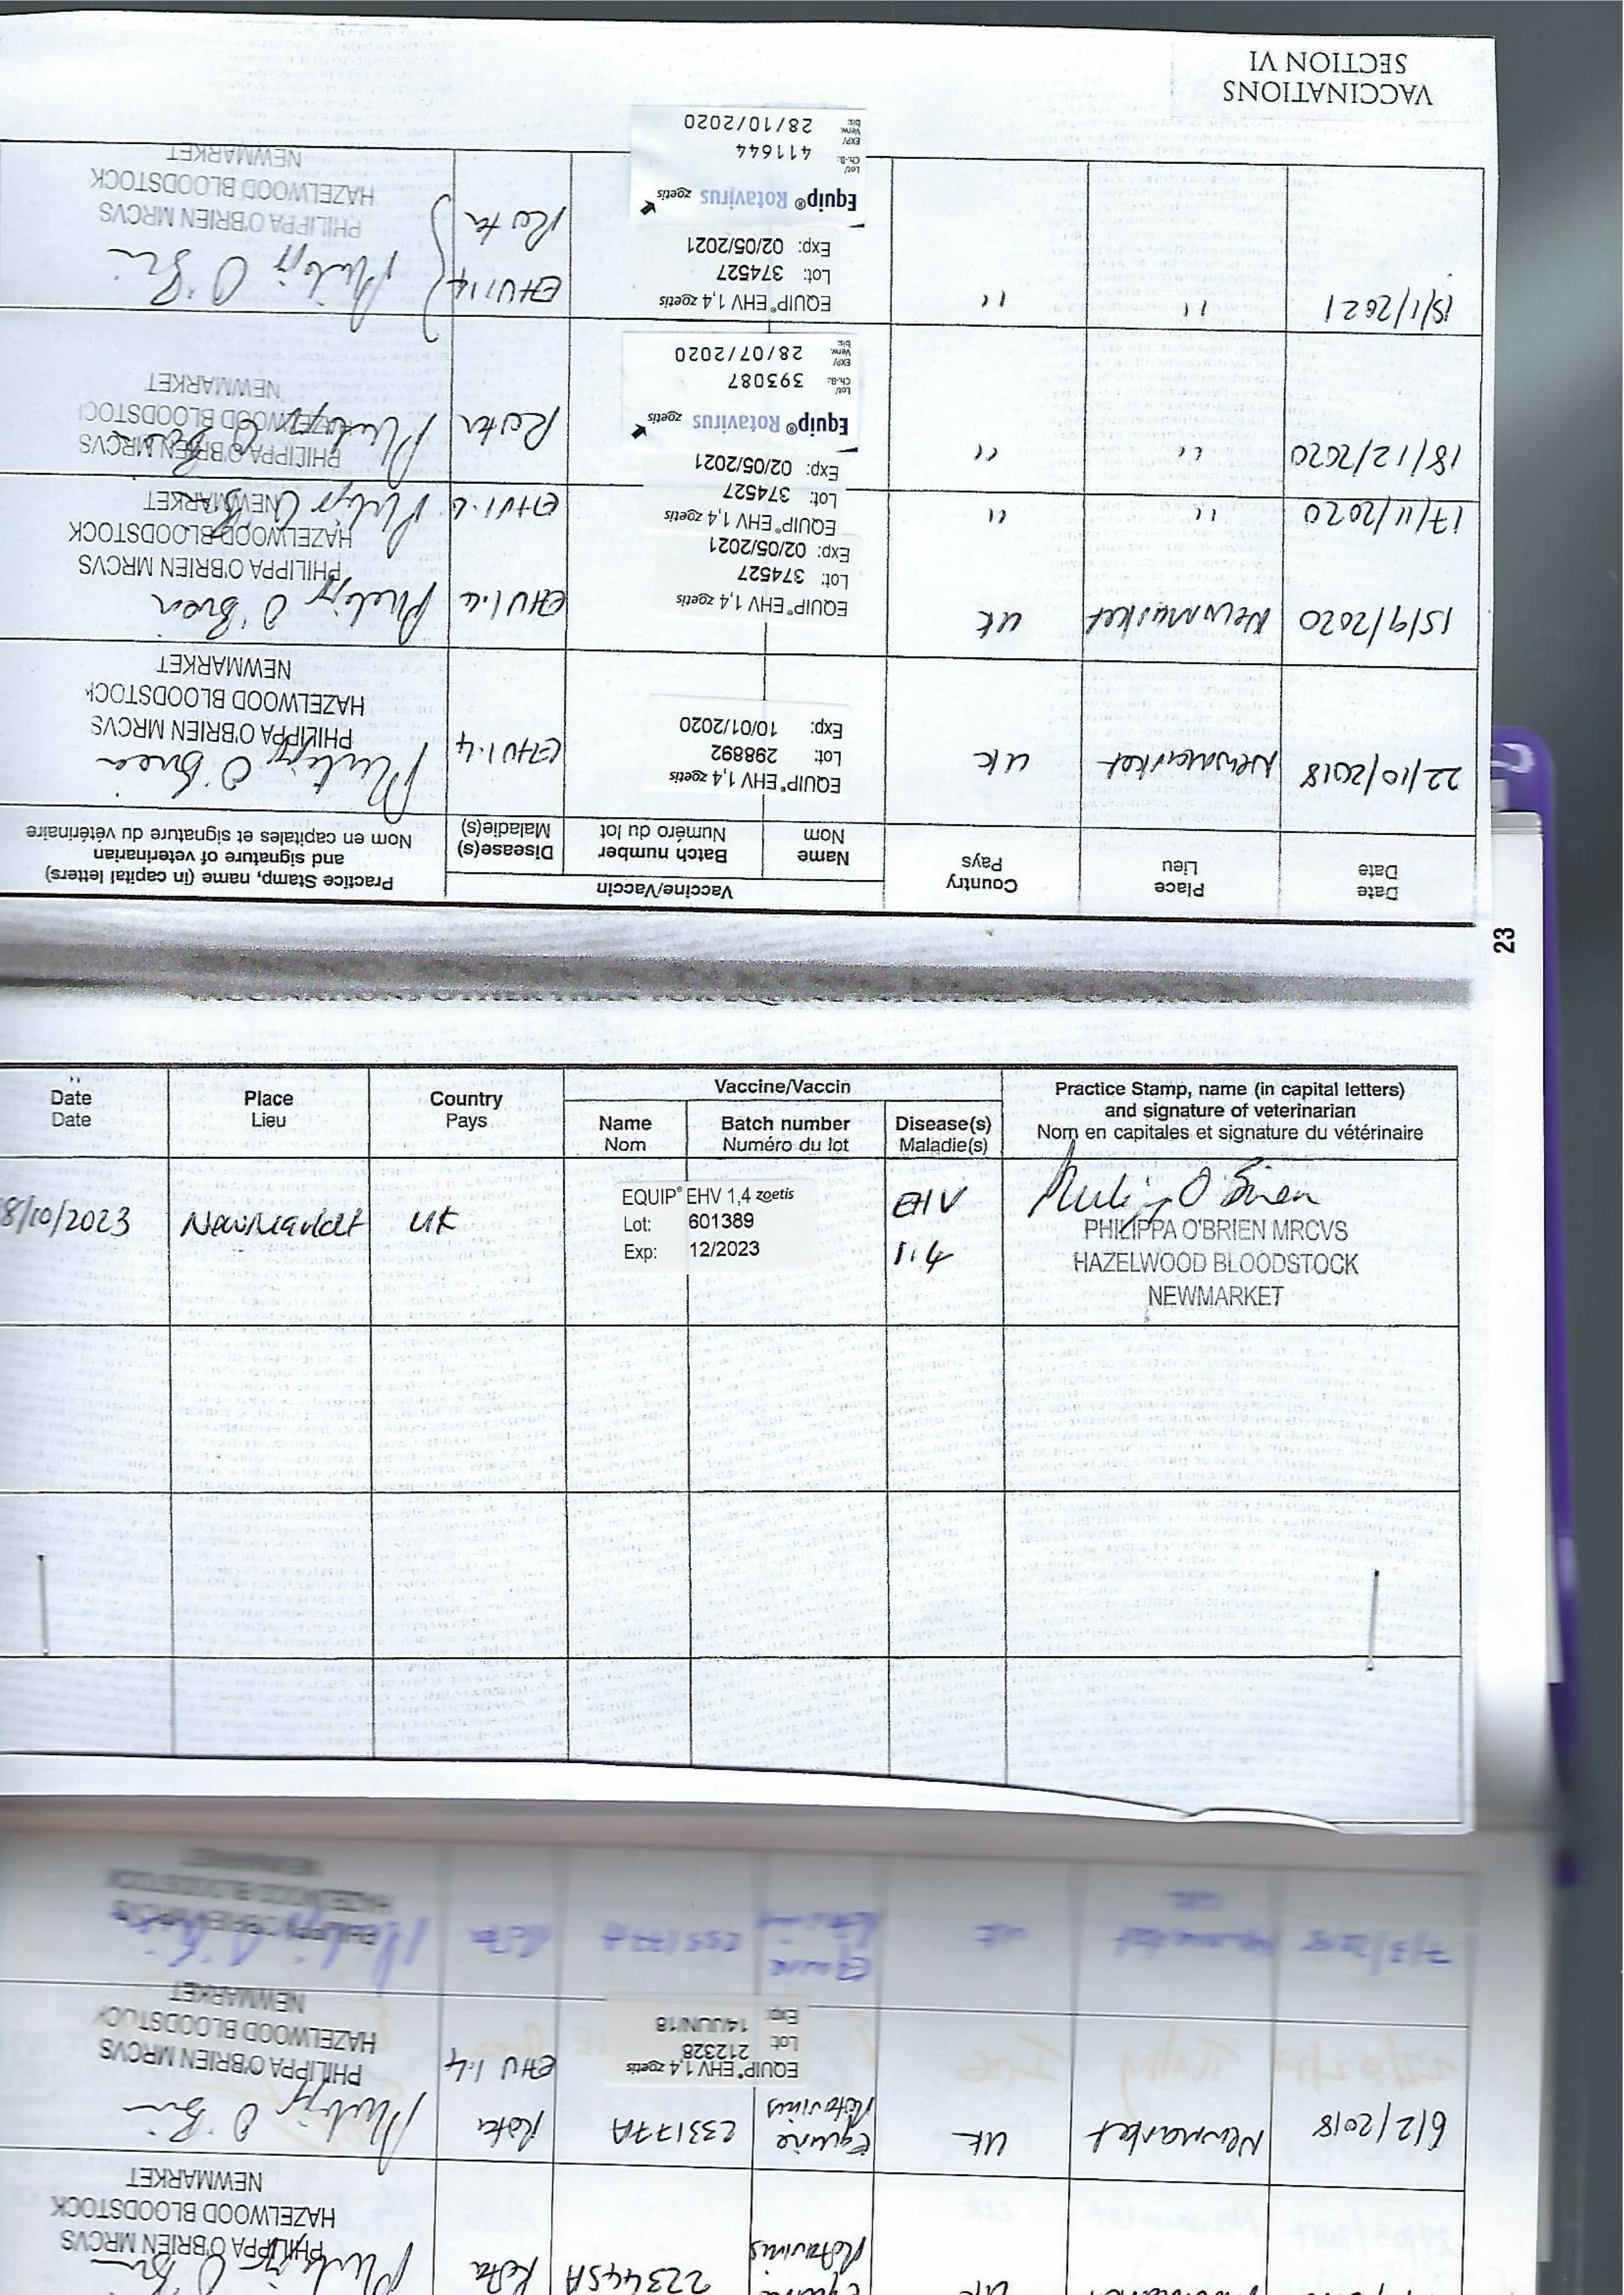 VACCINATIONS
SECTION VI
Date
Date
Place
Lieu
Country
Pays
Vaccine/Vaccin
Name
Nom
Batch number
Numéro du lot
Disease(s)
Maladie(s)
Practice Stamp, name (in capital letters)
and signature of veterinarian
Nom en capitales et signature du vétérinaire
22/10/2018 Newmarket UK
EQUIP® EHV 1,4 zoetis
Lot: 298892
Exp: 10/01/2020
EHV1.4
Philippa O'Brien
PHILIPPA O'BRIEN MRCVS
HAZELWOOD BLOODSTOCK
NEWMARKET
15/9/2020 Newmarket UK
EQUIP® EHV 1,4 zoetis
Lot: 374527
Exp: 02/05/2021
EHV1.4
Philippa O'Brien
PHILIPPA O'BRIEN MRCVS
HAZELWOOD BLOODSTOCK
NEWMARKET
17/11/2020 " "
EQUIP® EHV 1,4 zoetis
Lot: 374527
Exp: 02/05/2021
EHV1.4
18/12/2020 " "
Equip® Rotavirus zoetis
Lot/
Ch.-B.: 393087
EXP/
Verw.
bis: 28/07/2020
Rota
PHILIPPA O'BRIEN MRCVS
HAZELWOOD BLOODSTOC
NEWMARKET
15/1/2021 " "
EQUIP® EHV 1,4 zoetis
Lot: 374527
Exp: 02/05/2021
Equip® Rotavirus zoetis
Lot/
Ch.-B.: 411644
EXP/
Verw.
bis: 28/10/2020
EHV1.4
Rota
PHILIPPA O'BRIEN MRCVS
HAZELWOOD BLOODSTOCK
NEWMARKET
23
Date
Date
Place
Lieu
Country
Pays
Vaccine/Vaccin
Name
Nom
Batch number
Numéro du lot
Disease(s)
Maladie(s)
Practice Stamp, name (in capital letters)
and signature of veterinarian
Nom en capitales et signature du vétérinaire
8/10/2023 Newmarket UK
EQUIP® EHV 1,4 zoetis
Lot: 601389
Exp: 12/2023
EHV
1.4
Philippa O'Brien
PHILIPPA O'BRIEN MRCVS
HAZELWOOD BLOODSTOCK
NEWMARKET
223445A Rota
PHILIPPA O'BRIEN MRCVS
HAZELWOOD BLOODSTOCK
NEWMARKET
6/2/2018 Newmarket UK
Equine
Rotavirus
233177A
Rota
EQUIP® EHV 1,4 zoetis
Lot: 212328
Exp: 14/JUN/18
EHV 1.4
PHILIPPA O'BRIEN MRCVS
HAZELWOOD BLOODSTOCK
NEWMARKET
7/3/2018 Newmarket UK
Equine
Rota